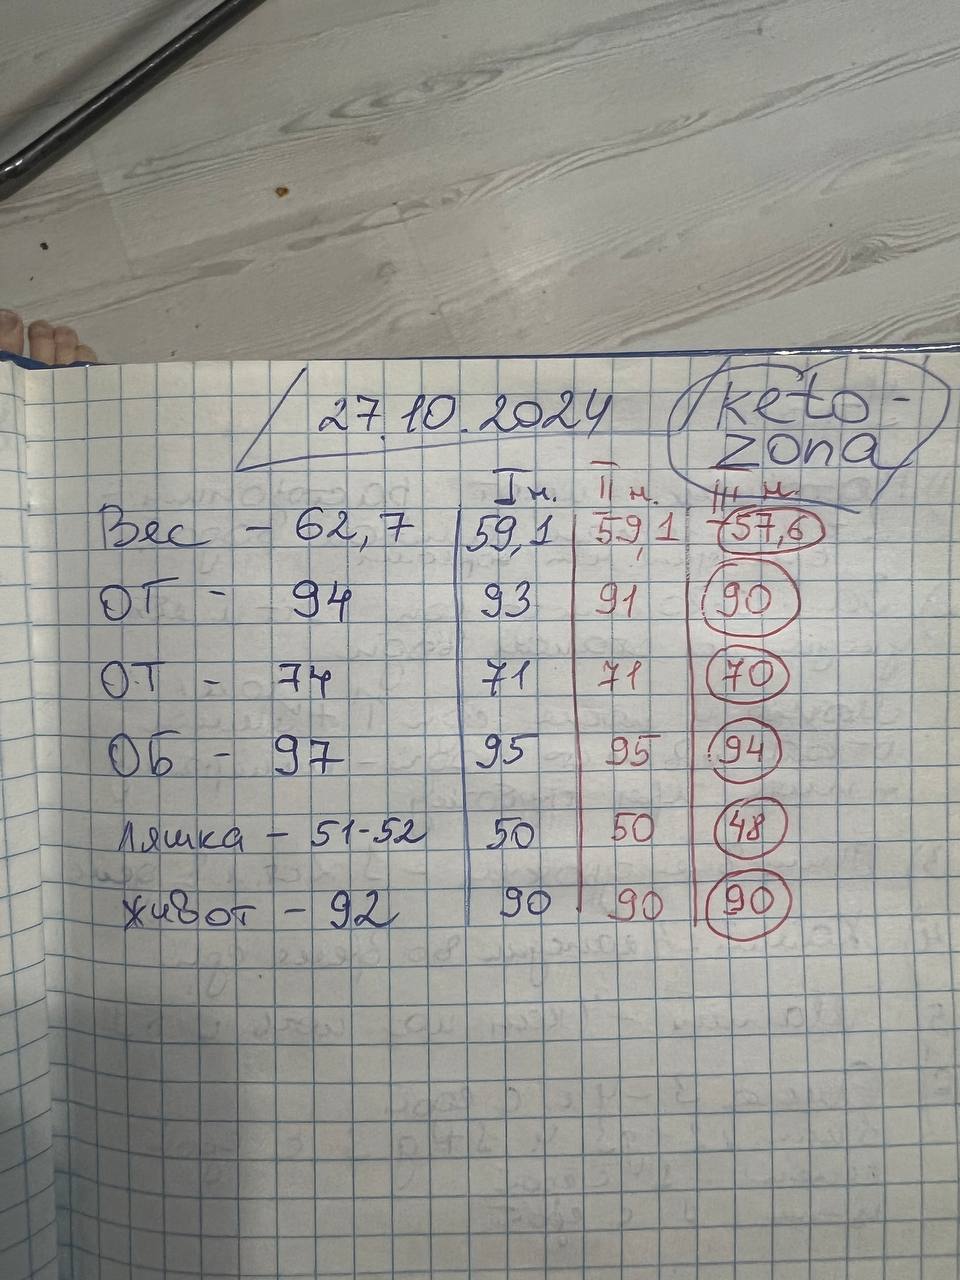 27.10.2024 keto-
zona
I н. II н. III н.
Вес - 62,7 59,1 59,1 57,6
ОТ - 94 93 91 90
ОТ - 74 71 71 70
ОБ - 97 95 95 94
Ляшка - 51-52 50 50 48
живот - 92 90 90 90